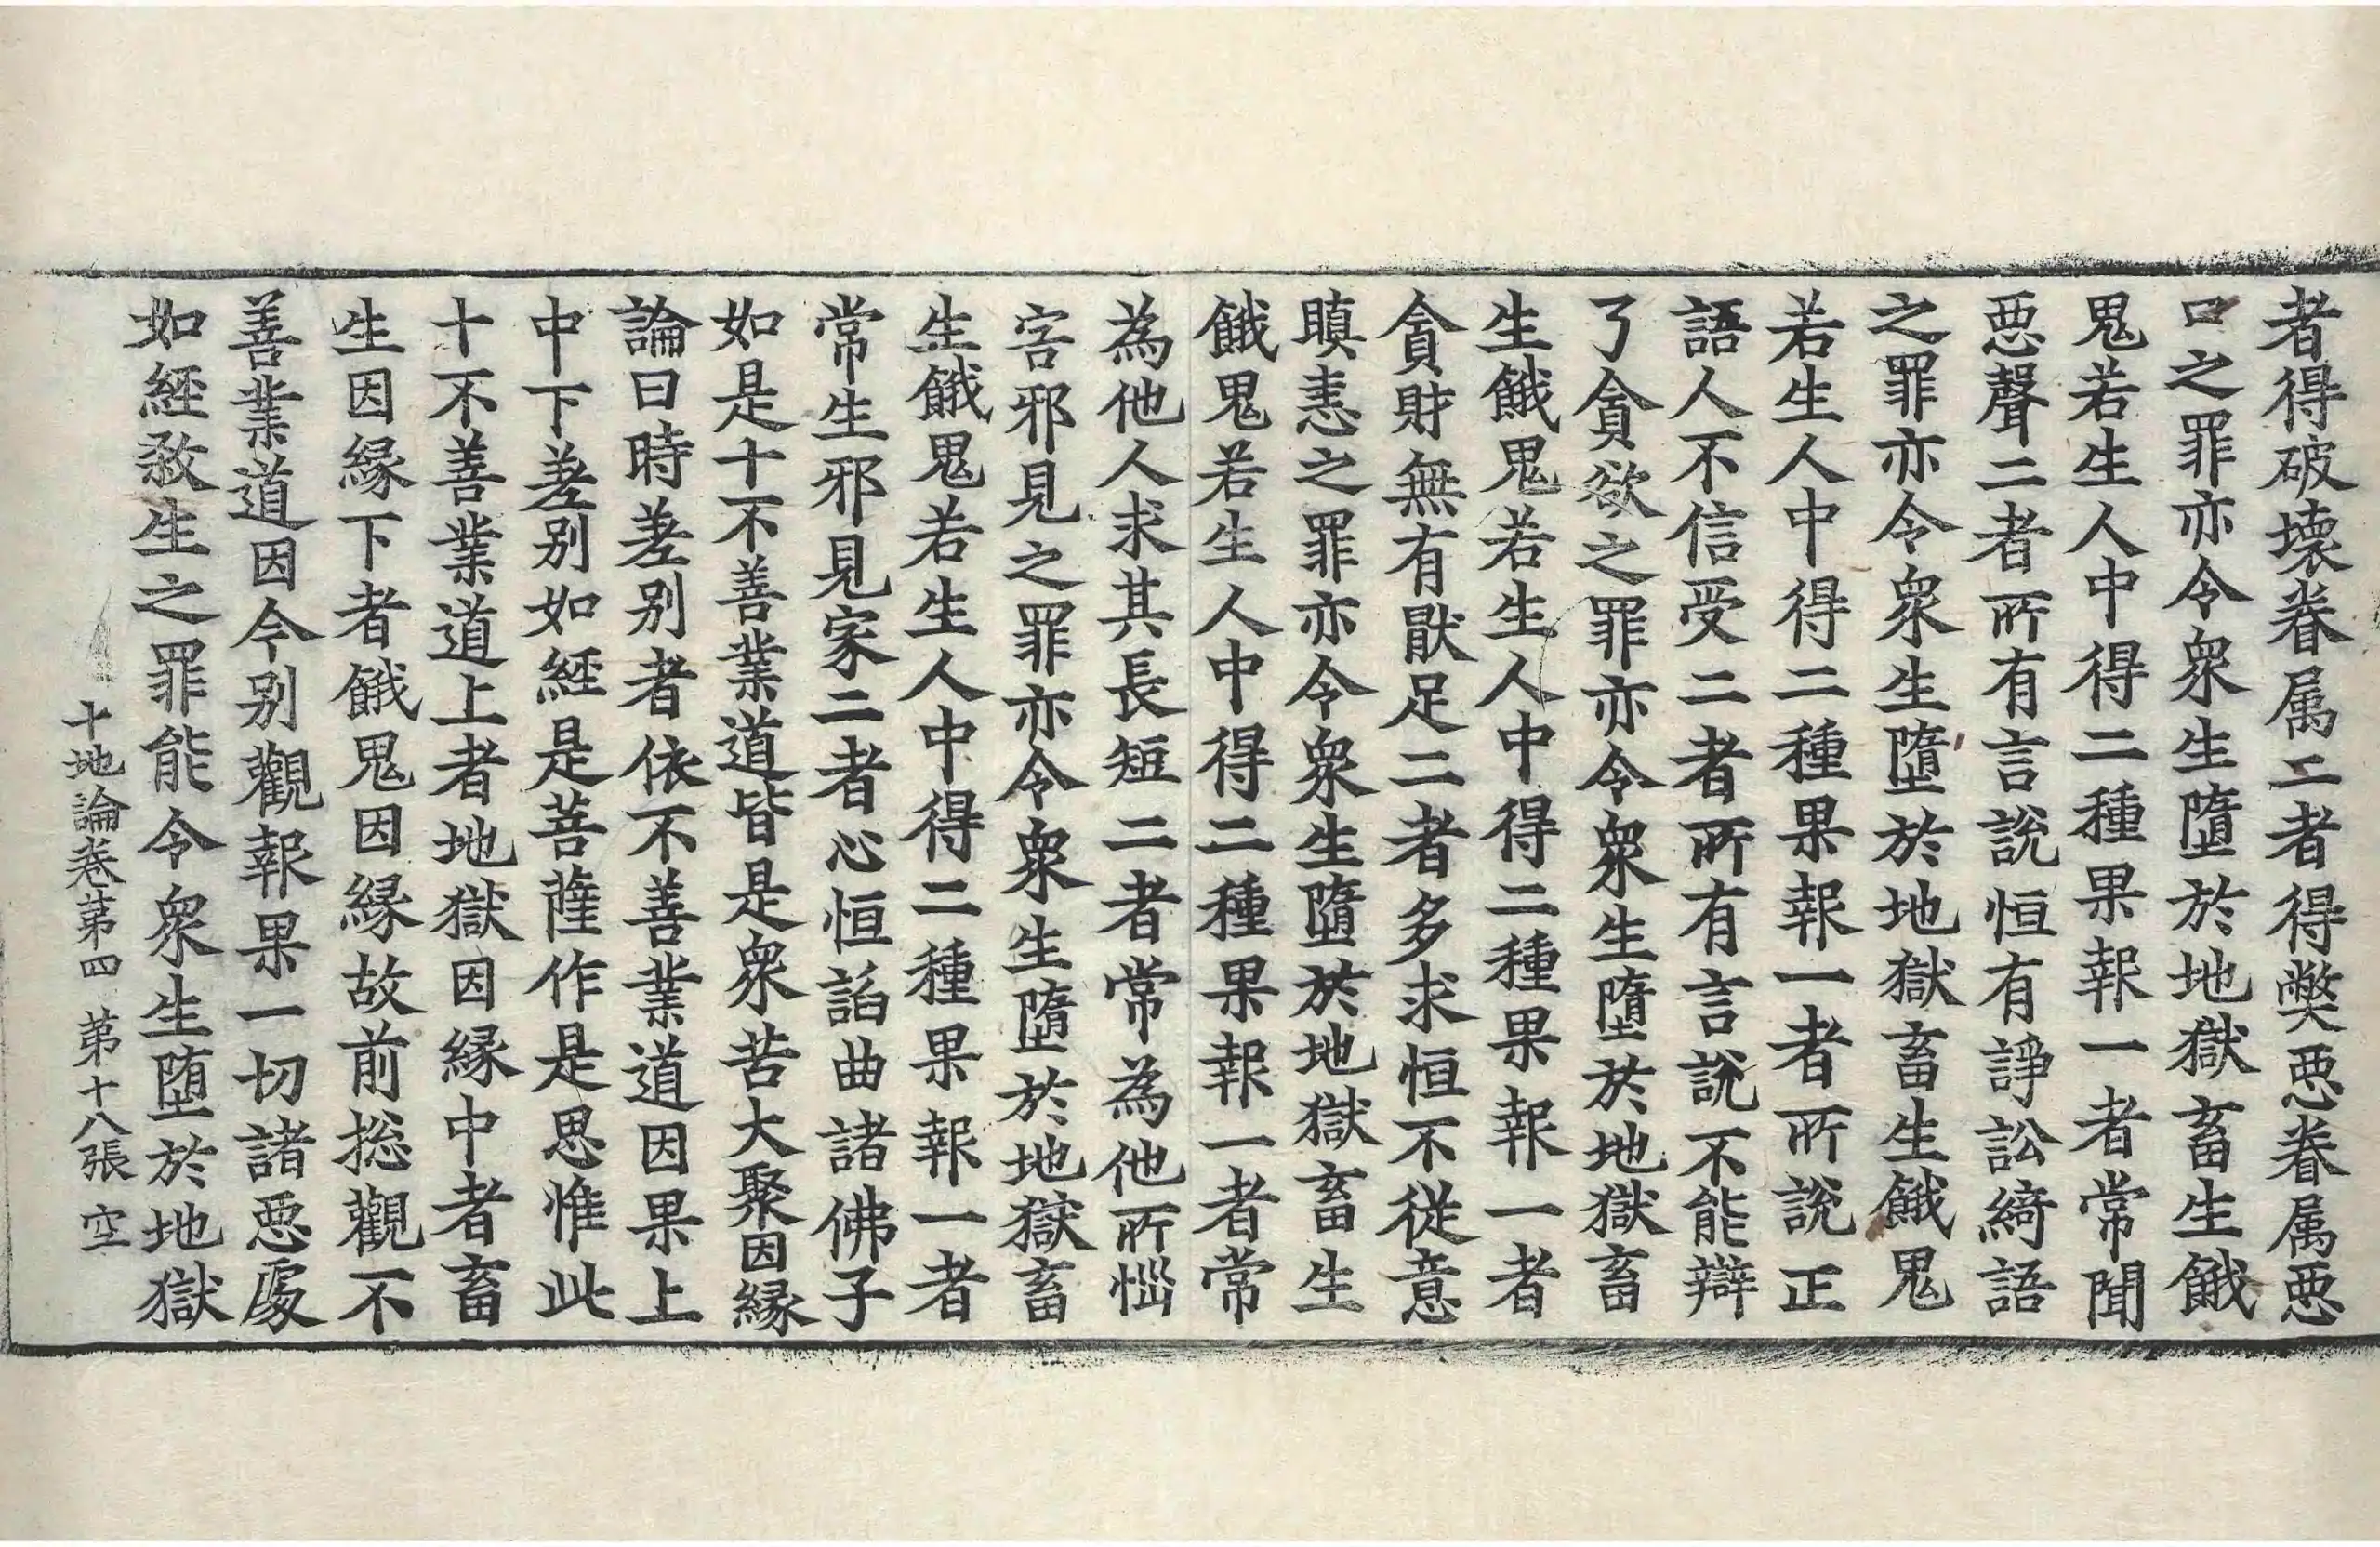 者得破壞眷属二者得弊惡眷属惡
口之罪亦令衆生墮於地獄畜生餓
鬼若生人中得二種果報一者常聞
惡聲二者所有言説恒有諍訟綺語
之罪亦令衆生墮於地獄畜生餓鬼
若生人中得二種果報一者所説正
語人不信受二者所有言説不能辯
了貪欲之罪亦令衆生墮於地獄畜
生餓鬼若生人中得二種果報一者
貪財無有猒足二者多求恒不従意
瞋恚之罪亦令衆生墮於地獄畜生
餓鬼若生人中得二種果報一者常
為他人求其長短二者常為他所惱
害邪見之罪亦令衆生墮於地獄畜
生餓鬼若生人中得二種果報一者
常生邪見家二者心恒諂曲諸佛子
如是十不善業道皆是衆苦大聚因縁
論曰時差别者依不善業道因果上
中下差别如經是菩薩作是思惟此
十不善業道上者地獄因縁中者畜
生因縁下者餓鬼因縁故前揔觀不
善業道因今别觀報果一切諸惡處
如經煞生之罪能令衆生堕於地獄
十地論卷第四 第十八張 空